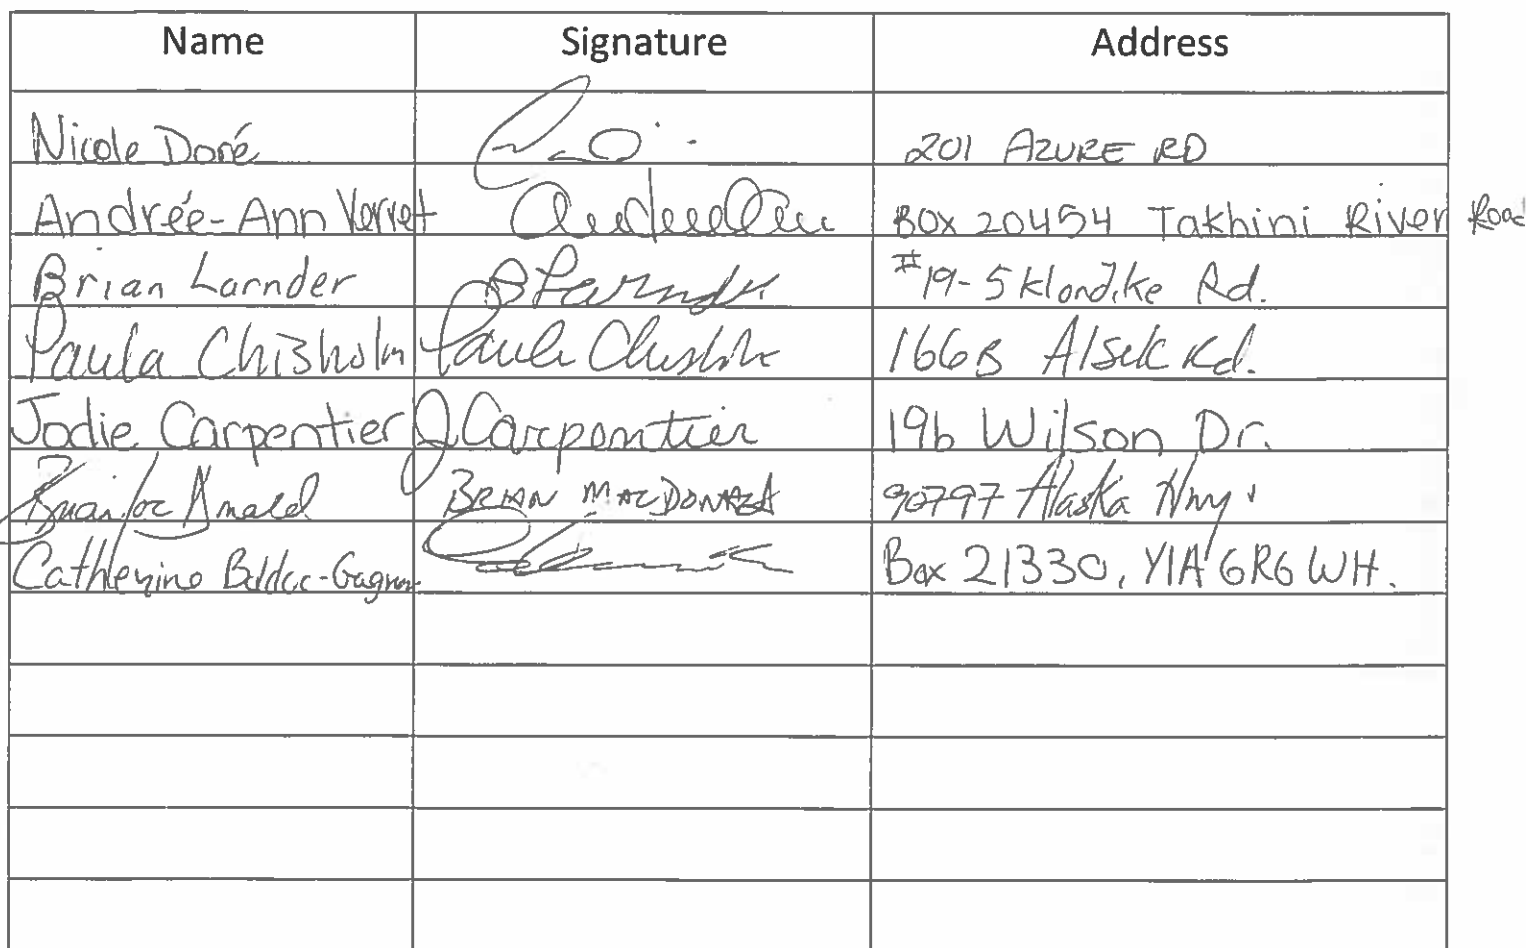 Name Signature Address
Nicole Doré 201 AZURE RD
Andrée-Ann Verret BOX 20454 Takhini River Road
Brian Larnder B Larnder #19-5 Klondike Rd.
Paula Chisholm Paula Chisholm 166B Alsek Rd.
Jodie Carpentier J Carpentier 19b Wilson Dr.
BRIAN MACDONALD 90797 Alaska Hwy.
Catherine Gagnon Box 21330, Y1A 6R6 WH.